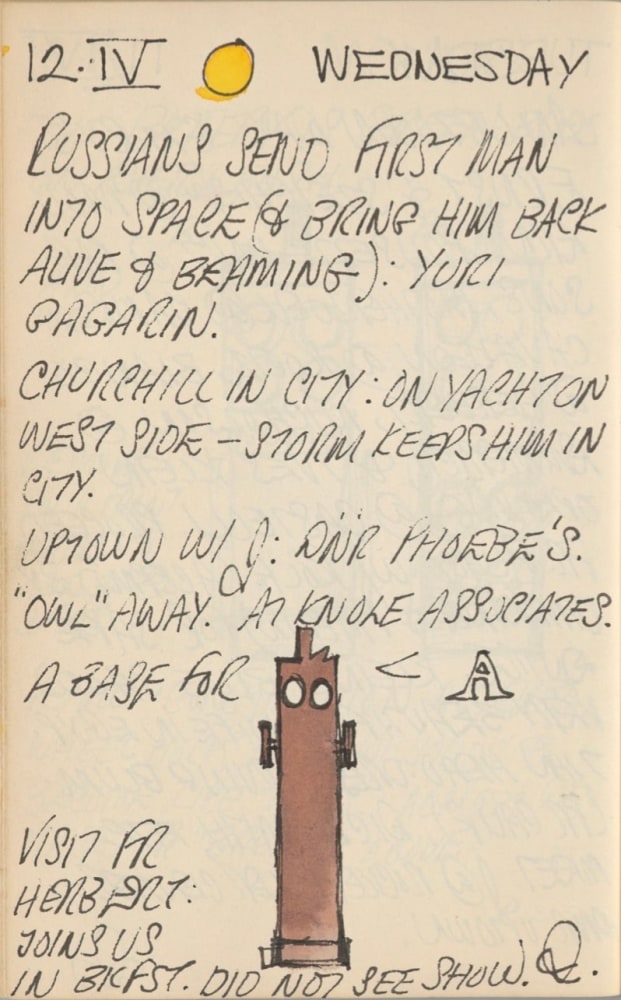 12.IV WEDNESDAY
RUSSIANS SEND FIRST MAN
INTO SPACE (& BRING HIM BACK
ALIVE & BEAMING): YURI
GAGARIN.
CHURCHILL IN CITY: ON YACHT ON
WEST SIDE – STORM KEEPS HIM IN
CITY.
UPTOWN W/ J: DNR PHOEBE'S.
"OWL" AWAY. AT KNOLE ASSOCIATES.
A BASE FOR < A
VISIT FR
HERBERT:
JOINS US
IN BKFST. DID NOT SEE SHOW. Q.